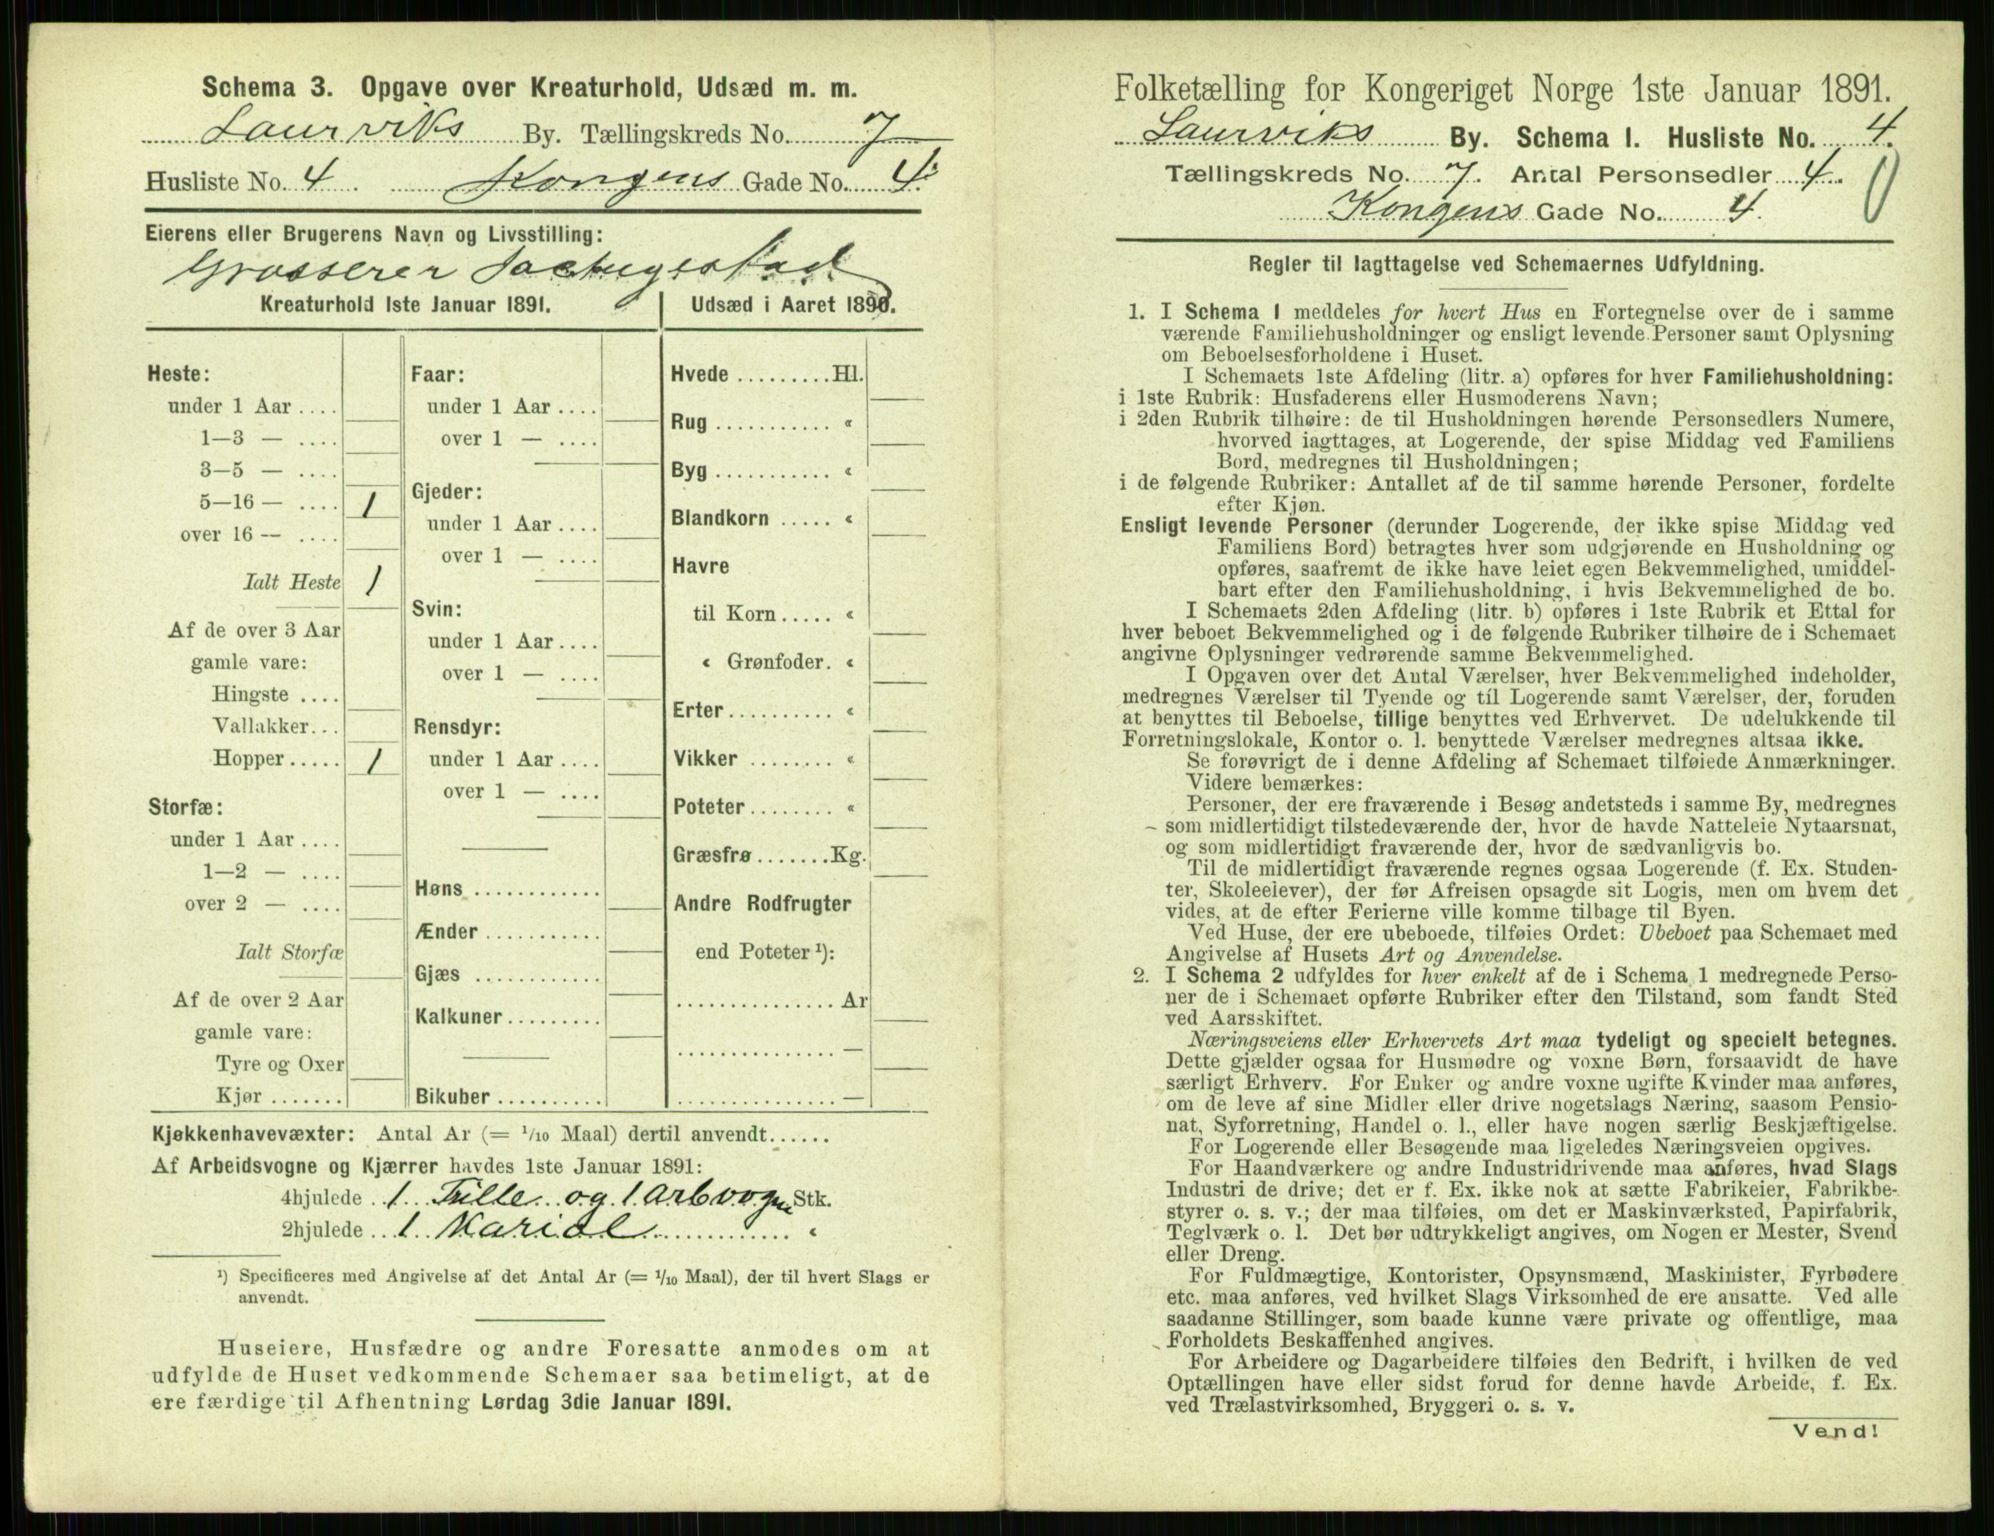 Schema 3. Opgave over Kreaturhold, Udsæd m. m.
Laurviks By. Tællingskreds No. 7
Husliste No. 4 Kongens Gade No. 4.
Eierens eller Brugerens Navn og Livsstilling:
Grosserer
Kreaturhold 1ste Januar 1891. Udsæd i Aaret 1890.
Heste:
under 1 Aar ....
1—3 — ....
3—5 — ....
5—16 — .... 1
over 16 — ....
Ialt Heste 1
Af de over 3 Aar
gamle vare:
Hingste ....
Vallakker...
Hopper..... 1
Storfæ:
under 1 Aar ....
1—2 — ....
over 2 — ....
Ialt Storfæ
Af de over 2 Aar
gamle vare:
Tyre og Oxer
Kjør .......
Faar:
under 1 Aar ....
over 1 — ....
Gjeder:
under 1 Aar ....
over 1 — ....
Svin:
under 1 Aar ....
over 1 — ....
Rensdyr:
under 1 Aar ....
over 1 — ....
Høns ............
Ænder ...........
Gjæs ............
Kalkuner.........
Bikuber ..........
Hvede .........Hl.
Rug ........... «
Byg ........... «
Blandkorn ..... «
Havre
til Korn..... «
« Grønfoder. «
Erter.......... «
Vikker ........ «
Poteter........ «
Græsfrø .......Kg.
Andre Rodfrugter
end Poteter ¹):
............... Ar
............... —
............... —
Kjøkkenhavevæxter: Antal Ar (= 1/10 Maal) dertil anvendt......
Af Arbeidsvogne og Kjærrer havdes 1ste Januar 1891:
4hjulede . 1 Trille og 1 Arbvogn Stk.
2hjulede . 1 Kariol «
¹) Specificeres med Angivelse af det Antal Ar (= 1/10 Maal), der til hvert Slags er
anvendt.
Huseiere, Husfædre og andre Foresatte anmodes om at
udfylde de Huset vedkommende Schemaer saa betimeligt, at de
ere færdige til Afhentning Lørdag 3die Januar 1891.
Folketælling for Kongeriget Norge 1ste Januar 1891.
Laurviks By. Schema 1. Husliste No. 4.
Tællingskreds No. 7. Antal Personsedler 4.
Kongens Gade No. 4.
Regler til Iagttagelse ved Schemaernes Udfyldning.
1. I Schema 1 meddeles for hvert Hus en Fortegnelse over de i samme
værende Familiehusholdninger og ensligt levende Personer samt Oplysning
om Beboelsesforholdene i Huset.
I Schemaets 1ste Afdeling (litr. a) opføres for hver Familiehusholdning:
i 1ste Rubrik: Husfaderens eller Husmoderens Navn;
i 2den Rubrik tilhøire: de til Husholdningen hørende Personsedlers Numere,
hvorved iagttages, at Logerende, der spise Middag ved Familiens
Bord, medregnes til Husholdningen;
i de følgende Rubriker: Antallet af de til samme hørende Personer, fordelte
efter Kjøn.
Ensligt levende Personer (derunder Logerende, der ikke spise Middag ved
Familiens Bord) betragtes hver som udgjørende en Husholdning og
opføres, saafremt de ikke have leiet egen Bekvemmelighed, umiddel-
bart efter den Familiehusholdning, i hvis Bekvemmelighed de bo.
I Schemaets 2den Afdeling (litr. b) opføres i 1ste Rubrik et Ettal for
hver beboet Bekvemmelighed og i de følgende Rubriker tilhøire de i Schemaet
angivne Oplysninger vedrørende samme Bekvemmelighed.
I Opgaven over det Antal Værelser, hver Bekvemmelighed indeholder,
medregnes Værelser til Tyende og til Logerende samt Værelser, der, foruden
at benyttes til Beboelse, tillige benyttes ved Erhvervet. De udelukkende til
Forretningslokale, Kontor o. l. benyttede Værelser medregnes altsaa ikke.
Se forøvrigt de i denne Afdeling af Schemaet tilføiede Anmærkninger.
Videre bemærkes:
Personer, der ere fraværende i Besøg andetsteds i samme By, medregnes
som midlertidigt tilstedeværende der, hvor de havde Natteleie Nytaarsnat,
og som midlertidigt fraværende der, hvor de sædvanligvis bo.
Til de midlertidigt fraværende regnes ogsaa Logerende (f. Ex. Studen-
ter, Skoleeiever), der før Afreisen opsagde sit Logis, men om hvem det
vides, at de efter Ferierne ville komme tilbage til Byen.
Ved Huse, der ere ubeboede, tilføies Ordet: Ubeboet paa Schemaet med
Angivelse af Husets Art og Anvendelse.
2. I Schema 2 udfyldes for hver enkelt af de i Schema 1 medregnede Perso-
ner de i Schemaet opførte Rubriker efter den Tilstand, som fandt Sted
ved Aarsskiftet.
Næringsveiens eller Erhvervets Art maa tydeligt og specielt betegnes.
Dette gjælder ogsaa for Husmødre og voxne Børn, forsaavidt de have
særligt Erhverv. For Enker og andre voxne ugifte Kvinder maa anføres,
om de leve af sine Midler eller drive nogetslags Næring, saasom Pensio-
nat, Syforretning, Handel o. l., eller have nogen særlig Beskjæftigelse.
For Logerende eller Besøgende maa ligeledes Næringsveien opgives.
For Haandværkere og andre Industridrivende maa anføres, hvad Slags
Industri de drive; det er f. Ex. ikke nok at sætte Fabrikeier, Fabrikbe-
styrer o. s. v.; der maa tilføies, om det er Maskinværksted, Papirfabrik,
Teglværk o. l. Det bør udtrykkeligt angives, om Nogen er Mester, Svend
eller Dreng.
For Fuldmægtige, Kontorister, Opsynsmænd, Maskinister, Fyrbødere
etc. maa anføres, ved hvilket Slags Virksomhed de ere ansatte. Ved alle
saadanne Stillinger, som baade kunne være private og offentlige, maa
Forholdets Beskaffenhed angives.
For Arbeidere og Dagarbeidere tilføies den Bedrift, i hvilken de ved
Optællingen have eller sidst forud for denne havde Arbeide, f. Ex.
ved Trælastvirksomhed, Bryggeri o. s. v.
Vend!